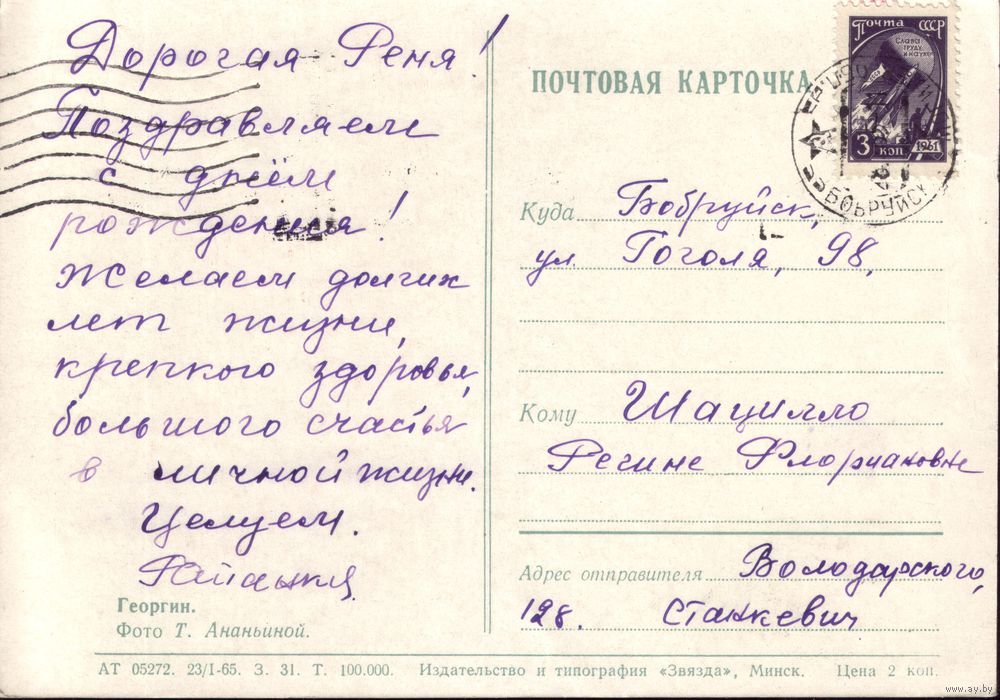 Дорогая Реня!
Поздравляем
с днём
рождения!
Желаем долгих
лет жизни,
крепкого здоровья,
большого счастья
в личной жизни.
Целуем.
Георгин.
Фото Т. Ананьиной.
Почта СССР
Слава
труду
и науке
3 коп 1961
БОБРУЙСК
ПОЧТОВАЯ КАРТОЧКА
Куда Бобруйск,
ул. Гоголя, 98,
Кому Шацилло
Регине Флориановне
Адрес отправителя Володарского,
128. Станкевич
АТ 05272. 23/I-65. З. 31. Т. 100.000. Издательство и типография «Звязда», Минск. Цена 2 коп.
www.ay.by